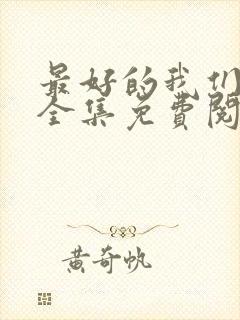 最好的我们
全集免费阅
黄奇帆